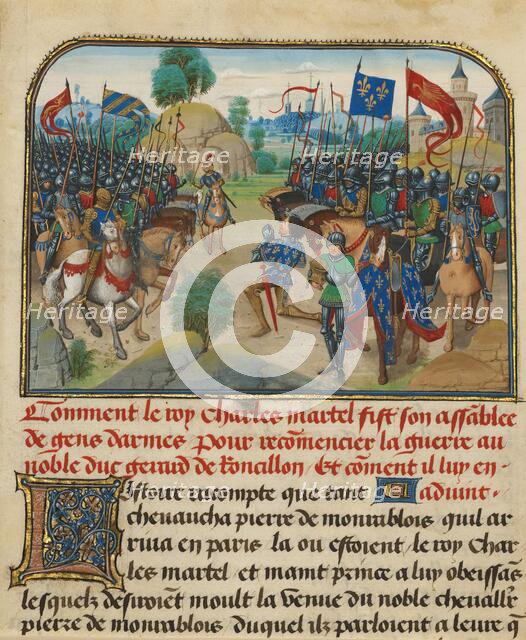 Comment le roy Charles martel fist son assamblee
de gens darmes pour recomencier la guerre au
noble duc gerard de Roncillon, Et coment il luy en
Listoire racompte que tant aduint.
cheuaucha pierre de monrablois quil ar
riua en paris la ou estoient, le roy Char
les martel et maint prince a luy obeissãs
lesquelz desiroient moult la venue du noble cheuallr
pierre de monrablois, duquel ilz parloient a leure q̃
Heritage Heritage
Heritage Heritage Heritage
Heritage Heritage